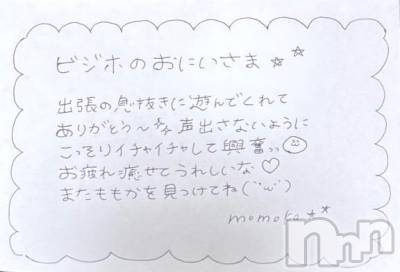 ビジホのおにいさま☆☆
出張の息抜きに遊んでくれて
ありがとう〜☆☆声出さないように
こっそりイチャイチャして興奮♪♪☺
お疲れ癒せてうれしいな♡
またももかを見つけてね(¨ω¨)
momoka☆*